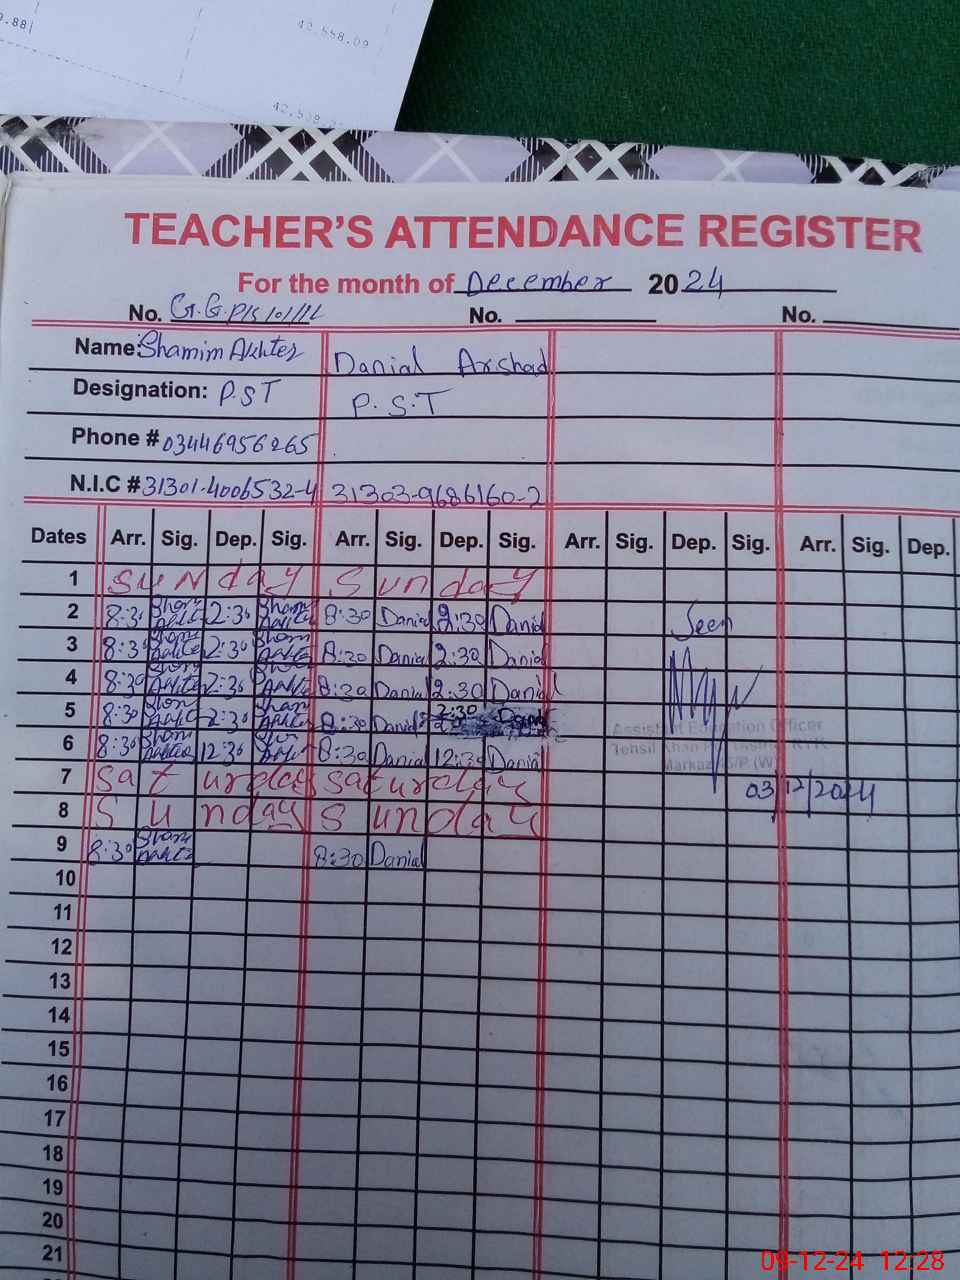 42,558.09
TEACHER'S ATTENDANCE REGISTER
For the month of December 2024
No. G.G.P/S 101/1L No. No.
Name: Shamim Akhter Danial Arshad
Designation: P.ST P.S.T
Phone # 03446956265
N.I.C # 31301-4006532-4 31303-9686160-2
Dates Arr. Sig. Dep. Sig. Arr. Sig. Dep. Sig. Arr. Sig. Dep. Sig. Arr. Sig. Dep.
1 Sunday Sunday
2 8:30 Sham Akhter 2:30 Sham Akhter 8:30 Danial 2:30 Danial Seen
3 8:30 Sham Akhter 2:30 Sham Akhter 8:30 Danial 2:30 Danial
4 8:30 Sham Akhter 2:30 Sham Akhter 8:30 Danial 2:30 Danial
5 8:30 Sham Akhter 2:30 Sham Akhter 8:30 Danial 2:30 Danial
Assistant Education Officer
6 8:30 Sham Akhter 12:30 Sham Akhter 8:30 Danial 12:30 Danial
Tehsil Khan
Markaz
7 Saturday Saturday 03/12/2024
8 Sunday Sunday
9 8:30 Sham Akhter 8:30 Danial
10
11
12
13
14
15
16
17
18
19
20
21
09-12-24 12:28